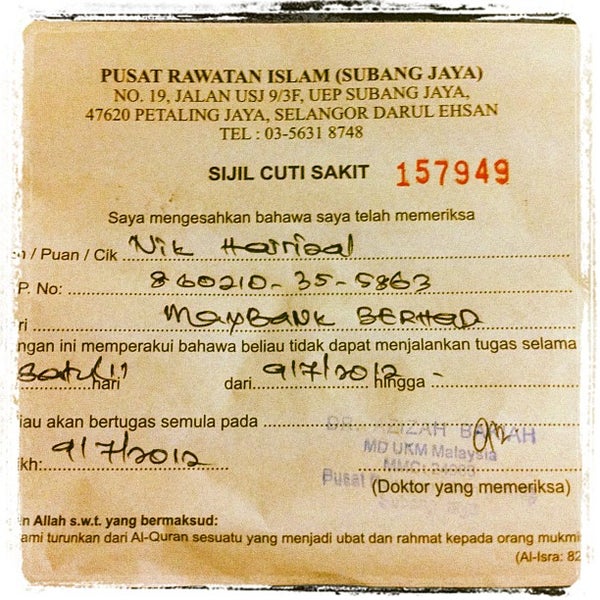 PUSAT RAWATAN ISLAM (SUBANG JAYA)
NO. 19, JALAN USJ 9/3F, UEP SUBANG JAYA,
47620 PETALING JAYA, SELANGOR DARUL EHSAN
TEL : 03-5631 8748
SIJIL CUTI SAKIT 157949
Saya mengesahkan bahawa saya telah memeriksa
/ Puan / Cik Nik Harrizal
P. No: 860210-35-5863
ri MayBank BERHAD
ngan ini memperakui bahawa beliau tidak dapat menjalankan tugas selama
satu(1) hari dari 9/7/2012 hingga -
iau akan bertugas semula pada
DR. AZIZAH
MD UKM Malaysia
MMC:
Pusat
ikh: 9/7/2012
(Doktor yang memeriksa)
n Allah s.w.t. yang bermaksud:
ami turunkan dari Al-Quran sesuatu yang menjadi ubat dan rahmat kepada orang mukmi
(Al-Isra: 82